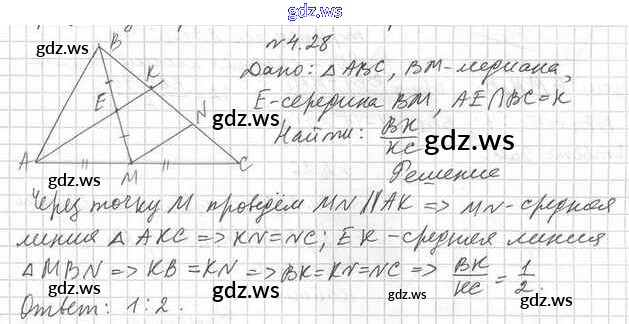 gdz.ws
№4.28
Дано: △ABC, BM-медиана,
E-середина BM, AE∩BC=K
Найти: BK/KC
Решение
Через точку M проведём MN∥AK => MN-средняя
линия △AKC => KN=NC; EK-средняя линия
△MBN => KB=KN => BK=KN=NC => BK/KC = 1/2.
Ответ: 1:2.
B
K
E
N
A
M
C
gdz.ws
gdz.ws
gdz.ws
gdz.ws
gdz.ws
gdz.ws
gdz.ws
gdz.ws
gdz.ws
gdz.ws
gdz.ws